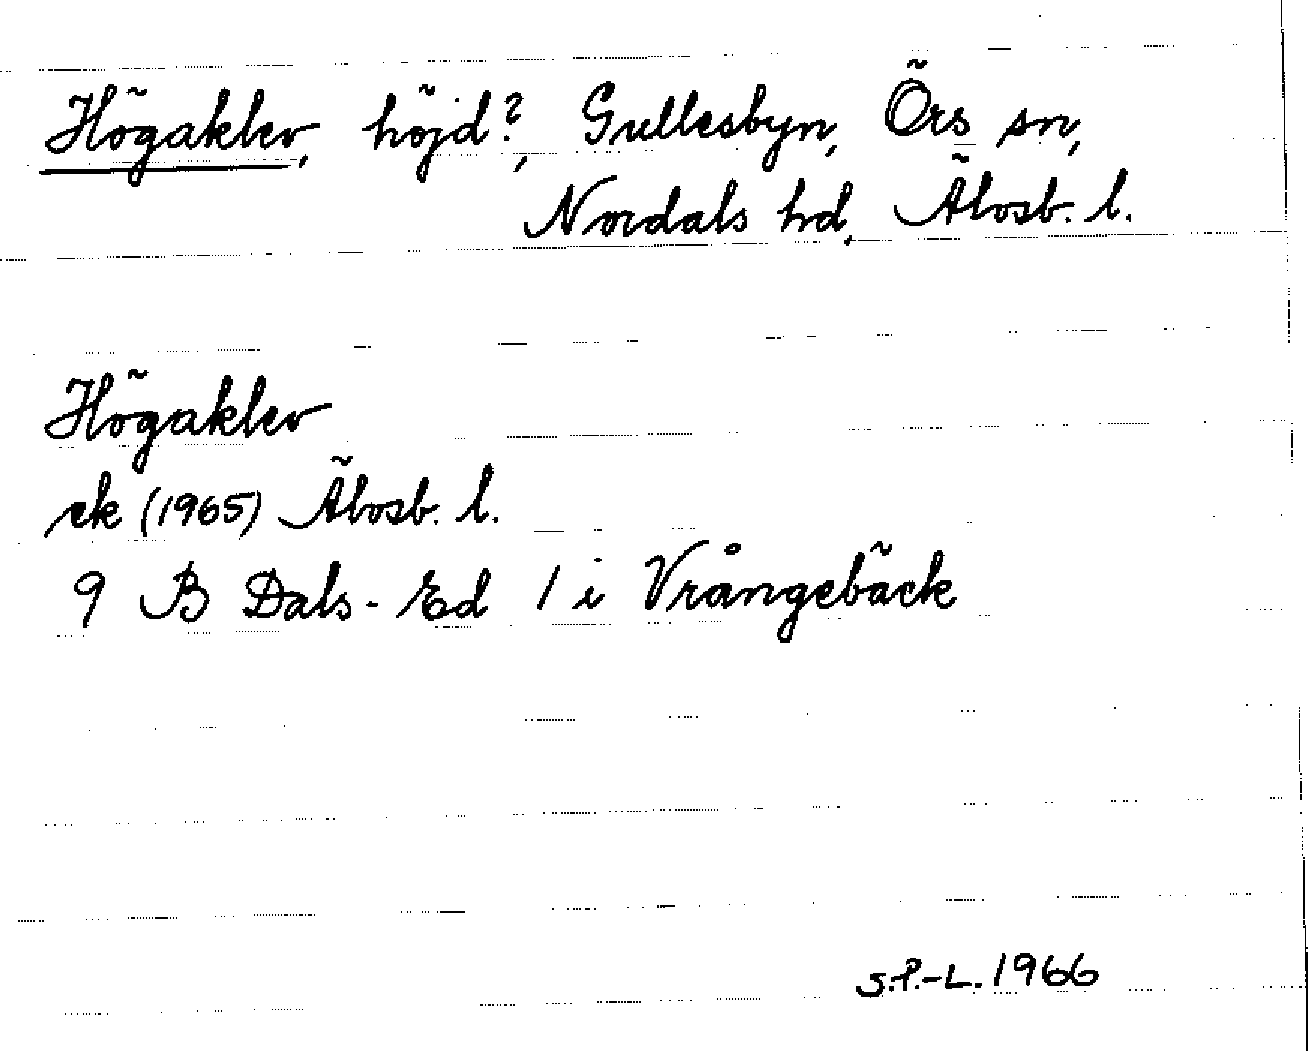 Högaklev, höjd?, Gullesbyn, Örs sn,
Nordals hd, Älvsb. l.
Högaklev
ek (1965) Älvsb. l.
9 B Dals-Ed 1 i Vrångebäck
S.P.-L. 1966